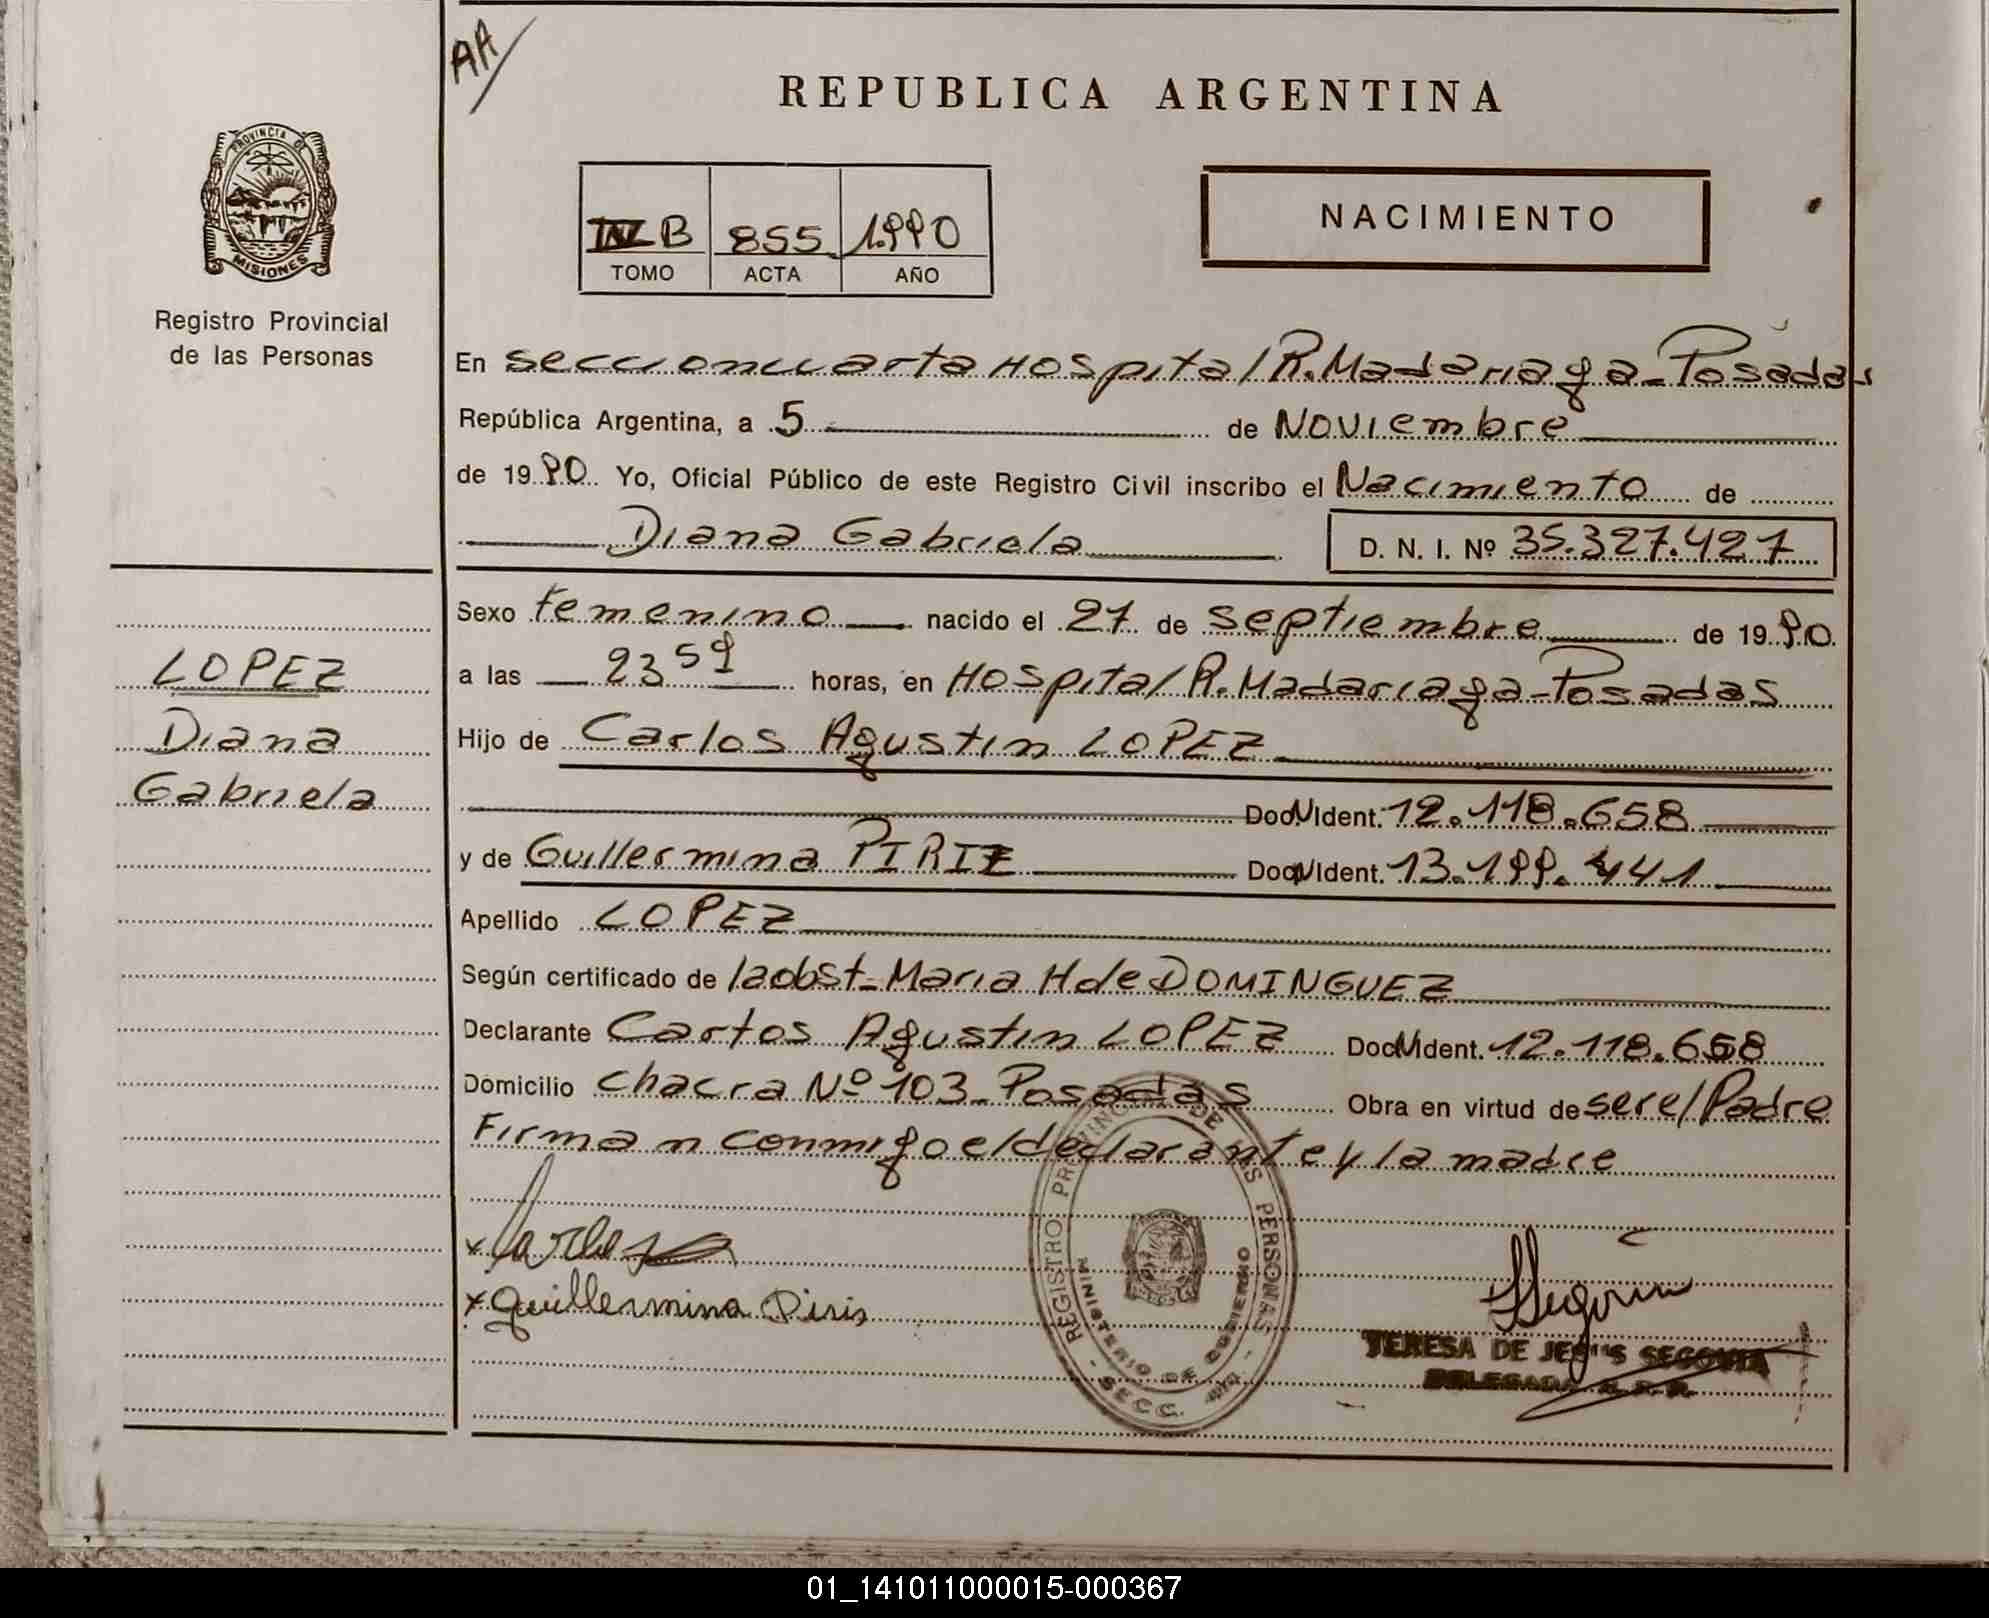 AA/
REPUBLICA ARGENTINA
PROVINCIA DE
MISIONES
B 855 1.990
TOMO ACTA AÑO
NACIMIENTO
Registro Provincial
de las Personas
En seccion cuarta Hospital R. Madariaga - Posadas
República Argentina, a 5 de Noviembre
de 19 90 Yo, Oficial Público de este Registro Civil inscribo el Nacimiento de
Diana Gabriela D. N. I. Nº 35.327.427
Sexo femenino nacido el 27 de septiembre de 19 90.
LOPEZ
Diana
Gabriela
a las 23 59 horas, en Hospital R. Madariaga - Posadas
Hijo de Carlos Agustin LOPEZ
Doc. N Ident. 12.118.658
y de Guillermina PIRIZ Doc. N Ident. 13.199.441
Apellido LOPEZ
Según certificado de la obst - Maria H de DOMINGUEZ
Declarante Carlos Agustin LOPEZ Doc N Ident. 12.118.658
Domicilio chacra Nº 103 - Posadas Obra en virtud de ser el Padre
Firman conmigo el declarante y la madre
REGISTRO PROVINCIAL DE LAS PERSONAS
MINISTERIO DE GOBIERNO
- SECC. 4ta -
x
x Guillermina Piris
TERESA DE JESUS SEGOVIA
DELEGADA R. P. P.
01_141011000015-000367